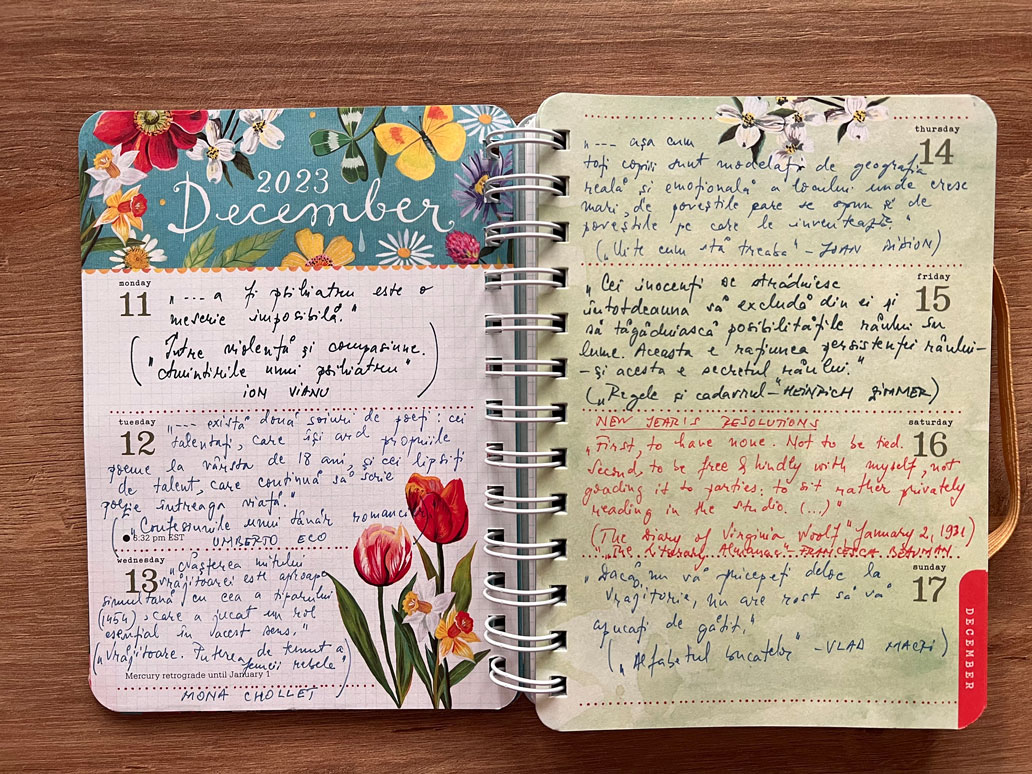 2023
December
monday
11
„--- a fi psihiatru este o
meserie imposibilă."
(„Între violență și compasiune.
Amintirile unui psihiatru"
ION VIANU)
tuesday
12
„--- există două soiuri de poeți: cei
talentați, care își ard propriile
poeme la vârsta de 18 ani, și cei lipsiți
de talent, care continuă să scrie
poezie întreaga viață."
(„Confesiunile unui tânăr romancier"
6:32 pm EST
UMBERTO ECO
wednesday
13
„Nașterea mitului
vrăjitoarei este aproape
simultană cu cea a tiparului
(1454), care a jucat un rol
esențial în acest sens."
(„Vrăjitoare. Puterea de temut a
femeii rebele"
Mercury retrograde until January 1
MONA CHOLLET)
thursday
14
„--- așa cum
toți copiii sunt modelați de geografia
reală și emoțională a locului unde cresc
mari, de poveștile care se spun și de
poveștile pe care le inventează."
(„Uite cum stă treaba" - JOAN DIDION)
friday
15
„Cei inocenți se străduiesc
întotdeauna să excludă din ei și
să tăgăduiască posibilitățile răului în
lume. Aceasta e rațiunea persistenței răului -
- și acesta e secretul răului."
(„Regele și cadavrul" - HEINRICH ZIMMER)
saturday
16
NEW YEAR'S RESOLUTIONS
„First, to have none. Not to be tied.
Second, to be free & kindly with myself, not
goading it to parties: to sit rather privately
reading in the studio. (...)"
(„The Diary of Virginia Woolf", January 2, 1931)
„The Literary Almanac" - FRANCESCA BEAUMAN
sunday
17
„Dacă nu vă pricepeți deloc la
vrăjitorie, nu are rost să vă
apucați de gătit."
(„Alfabetul bucatelor" - VLAD MACRI)
DECEMBER